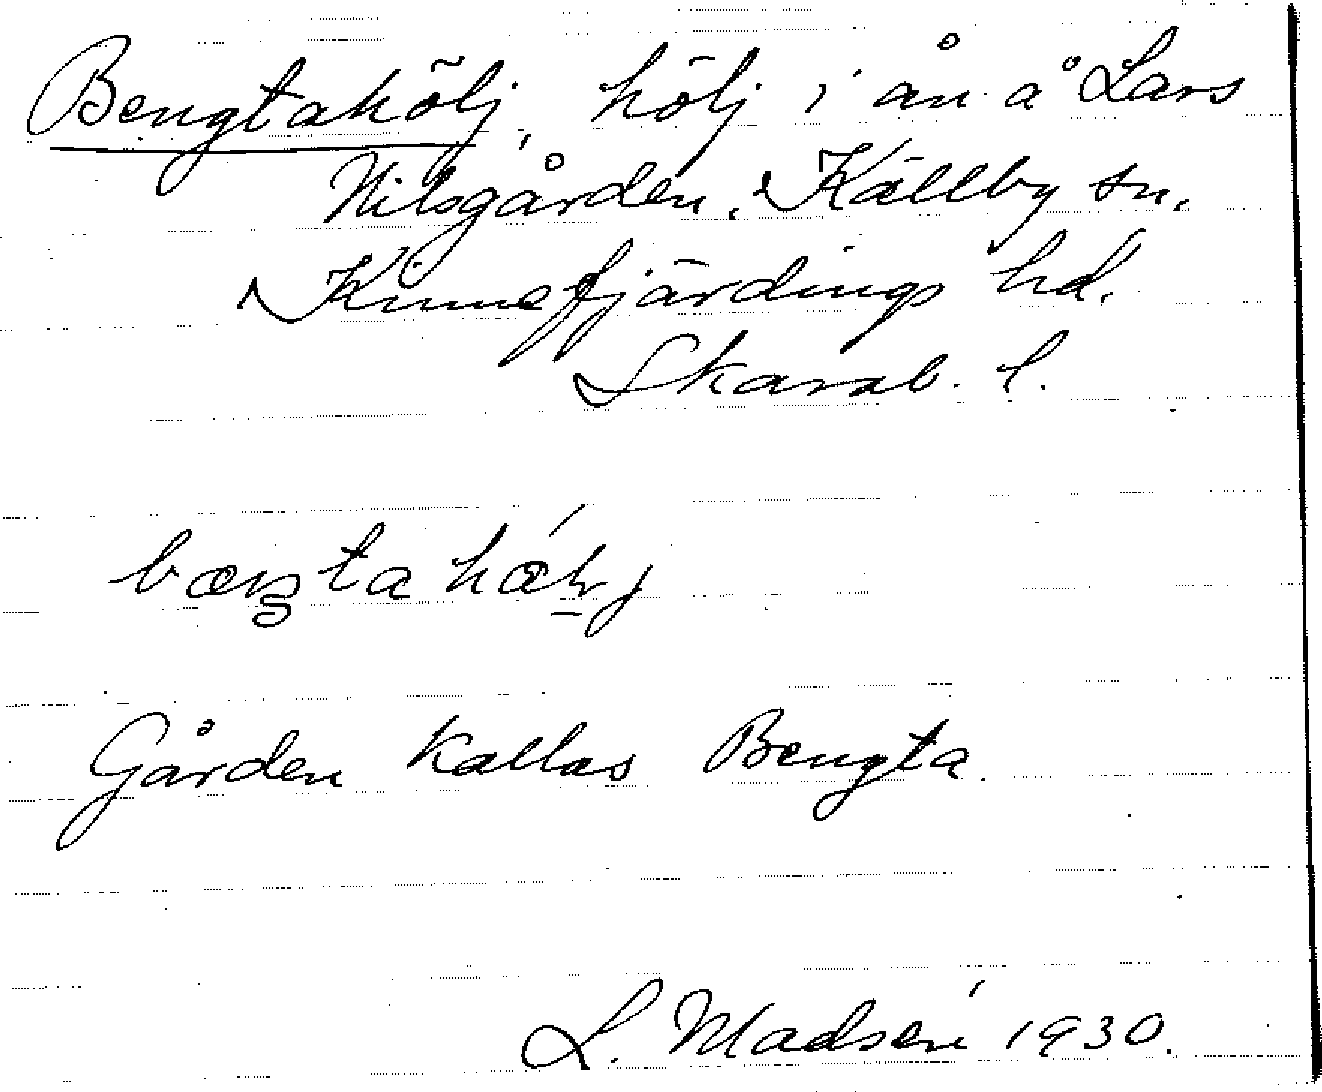 Bengtahölj, hölj i ån å Lars
Nilsgården, Källby sn.
Kinnefjärdings hd.
Skarab. l.
Gården kallas Bengta.
L. Madsén 1930.